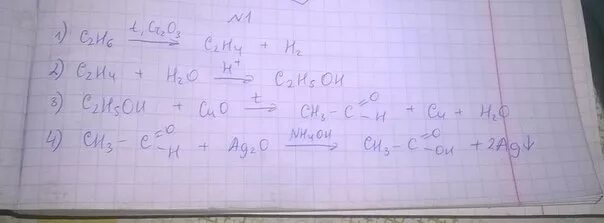 N1
1) C2H6 t, Cr2O3 → C2H4 + H2
2) C2H4 + H2O H+ → C2H5OH
3) C2H5OH + CuO t → CH3-C=O-H + Cu + H2O
4) CH3-C=O-H + Ag2O NH4OH → CH3-C=O-OH + 2Ag↓